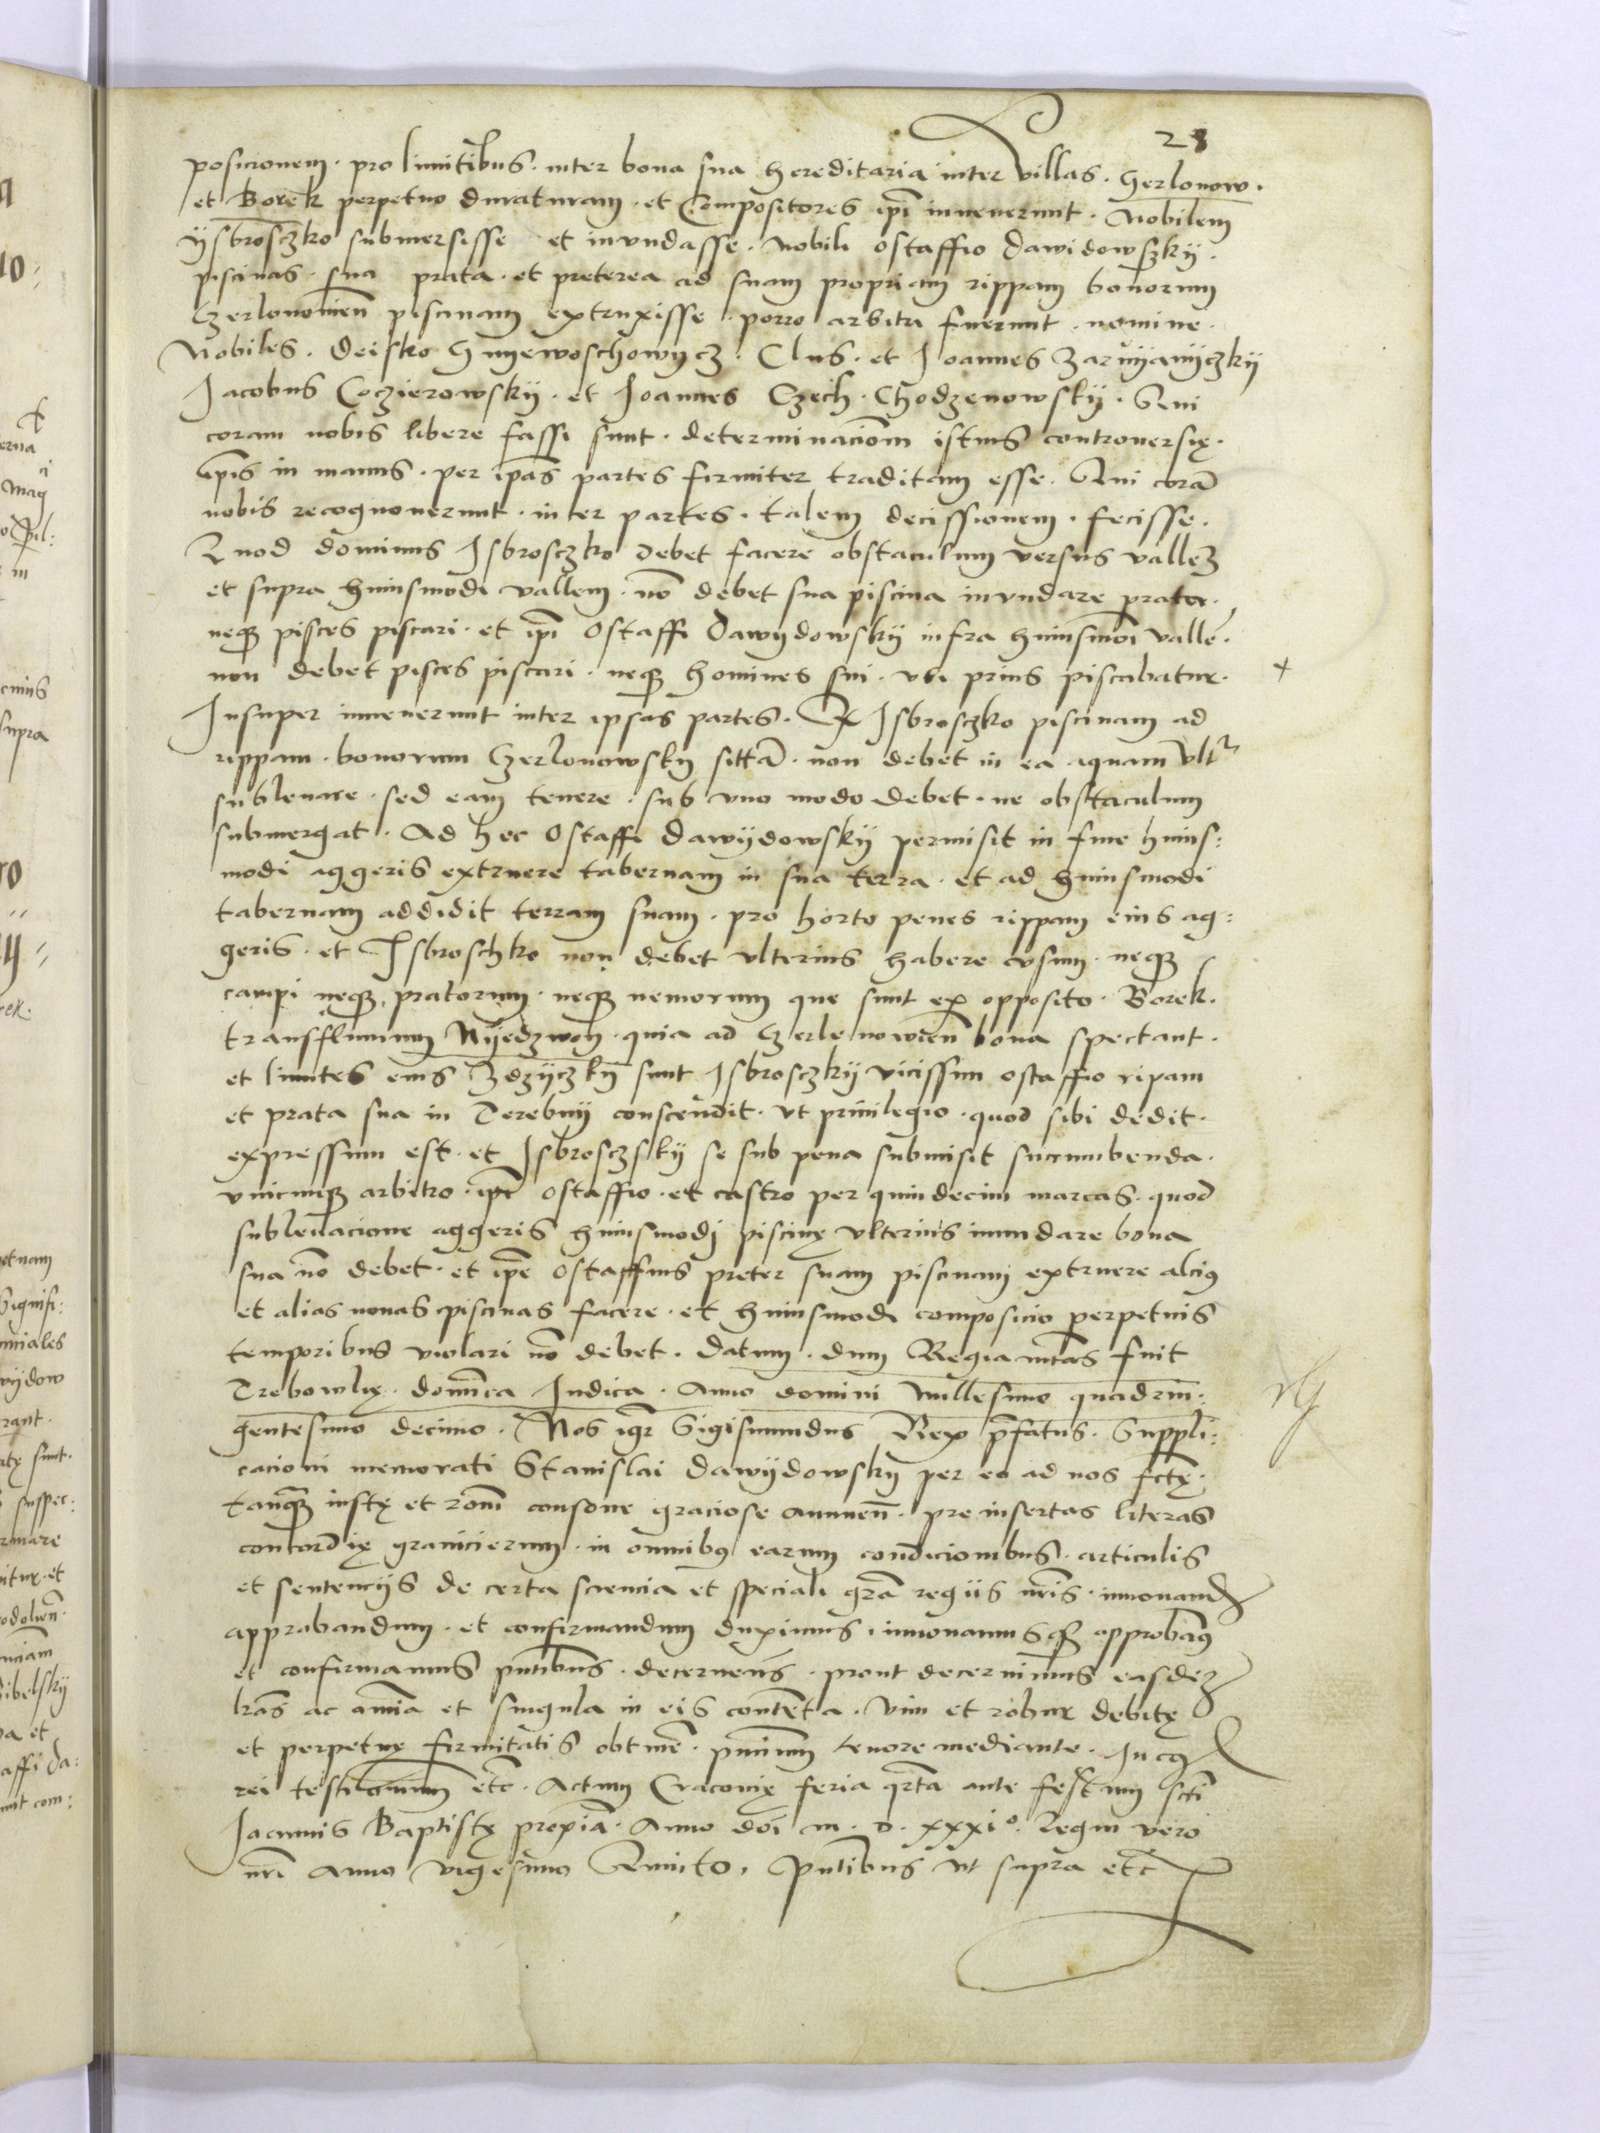 28
posicionem · pro limitibus · inter bona sua hereditaria inter villas · Gerlonow ·
et Borek perpetuo duraturam · et Compositores ipi inuenerunt · Nobilem
ysbrosczko submersisse et invndasse · nobili ostaffio dawidowszky ·
piscinas · sua prata · et preterea ad suam propriam rippam bonorum
piscinam extruxisse · porro arbitri fuerunt · nomine ·
Nobiles · deisko · Clus · et Joannes
Jacobus Coczierowsky · et Joannes Czech · Chodzenowsky · Qui
coram nobis libere fassi sunt · determinaciom istius controuersię ·
ipis in manus · per ipas partes firmiter traditam esse · Qui cora
nobis recognouerunt · inter partes · talem decissionem · fecisse ·
Quod dominus Isbrosczko debet facere obstaculum versus vallez
et supra huiusmodi vallem · no debet sua piscina invndare prata ·
neque pisces piscari · et ipi Ostaffi Dawydowsky infra huiusmoi valle ·
non debet pisces piscari · neque homines sui · vbi prius piscabatur · +
Insuper inuenerunt inter ipsas partes · Isbrosczko piscinam ad
rippam · bonorum Gerlonowsky sitta · non debet in ea aquam vltr
subleuare · sed eam tenere · sub vno modo debet · ne obstaculum
submergat · Ad hec Ostaffi Dawydowsky permisit in fine huius:
modi aggeris extruere tabernam in sua terra · et ad huiusmodi
tabernam addidit terram suam · pro horto penes rippam eius ag:
geris · et Isbroschko non debet vlterius habere vsum · neque
campi neque pratorum · neque nemorum que sunt ex opposito · Borek ·
transfluuium Nyedzwon · quia ad bona spectant ·
et limites eius sunt Isbrosczky vicissim ostaffio ripam
et prata sua in Terebny conscendit · vt priuilegio · quod sibi dedit ·
expressum est · et Isbrosczsky se sub pena submisit succumbenda ·
vnicuique arbitro · ipi ostaffio · et castro per quindecim marcas · quod
subleuacione aggeris huiusmodj piscinę vlterius inundare bona
sua no debet · et ipe Ostaffius preter suam piscinam extruere alcius
et alias nouas piscinas facere · et huiusmodi composicio perpetuis
temporibus violari no debet · datum · dum Regia mtas fuit
Trebowlię · domica Iudica · Anno domini millesimo quadrin:
gentesimo decimo · Nos igr Sigismundus Rex pfatus · Suppli:
cacioni memorati Stanislai Dawydowsky per eo ad nos fctę ·
tanquam iustę et romi consone graciose annuen · pre insertas literas
concordię granicierum · in omnibus earum condicionibus · articulis
et sentencijs de certa sciencia et speciali gra regiis nris · innouand
approbandum · et confirmandum duximus · innouamusque approbamus
et confirmamus pntibus · decernens · prout decernimus easdez
lras ac omia et singula in eis contenta · vim et robur debitę
et perpetuę firmitatis obtine · pntium tenore mediante · In cuius
rei testimonium etc · Actum Cracovię feria qrta ante festum scti
Joannis Baptistę proxia · Anno doi m · d · xxxi° · Regni vero
nri anno vigesimo Quinto · Pntibus vt supra etc